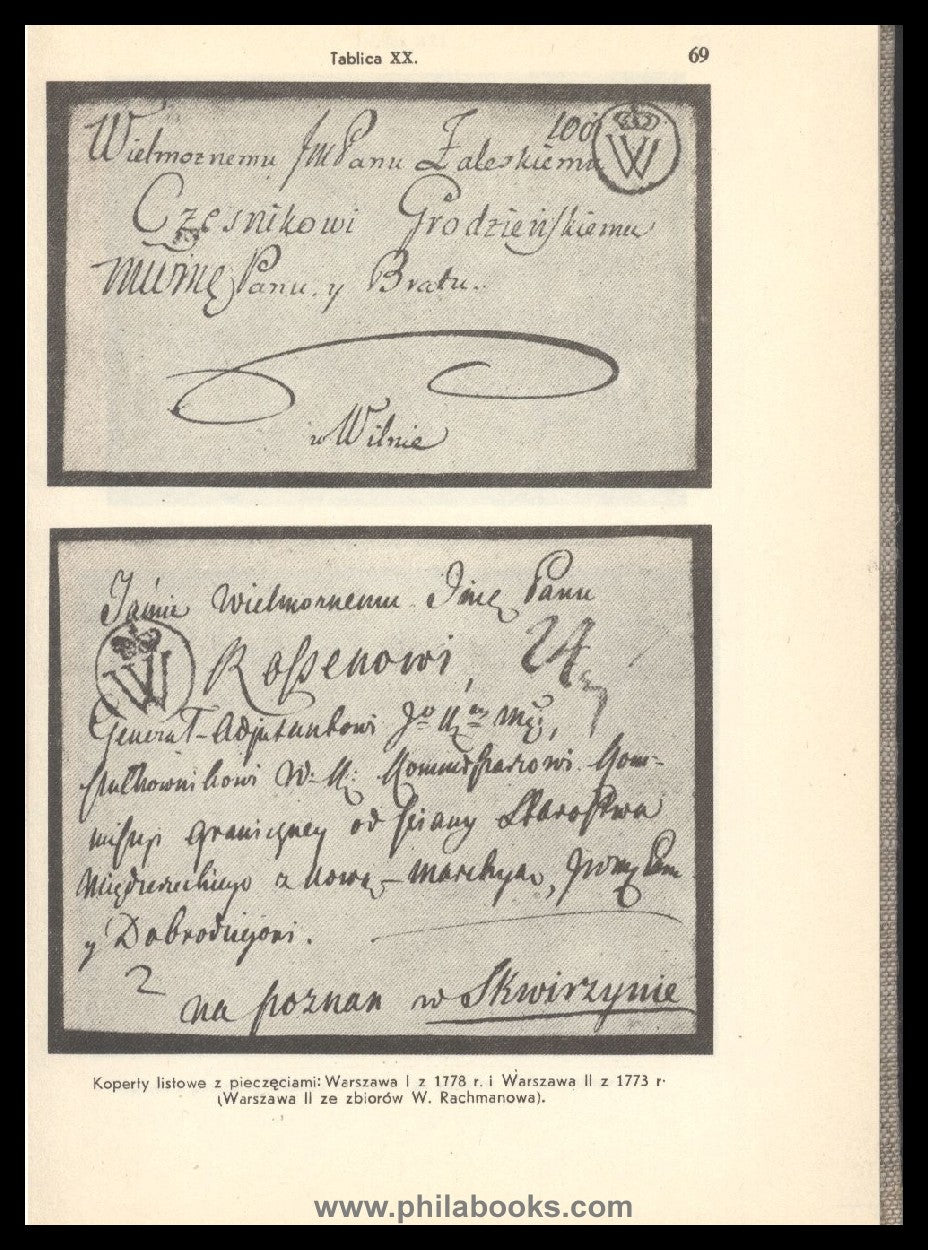 Tablica XX.
69
100
W
Wielmoznemu JmPanu Zaleskiemu
Czesnikowi Grodzieńskiemu
Panu y Bratu.
w Wilnie
Jaśnie Wielmoznemu Jmę Panu
W
Rossenowi, 24
General-Adjutantowi
Pułkownikowi W: K: Kommissarzowi Kom-
missyi graniczney od sciany Starostwa
Międzyrzeckiego z nową-marchyą,
y Dobrodzieiowi.
2
na poznan w Skwirzynie
Koperty listowe z pieczęciami: Warszawa I z 1778 r. i Warszawa II z 1773 r.
(Warszawa II ze zbiorów W. Rachmanowa).
www.philabooks.com